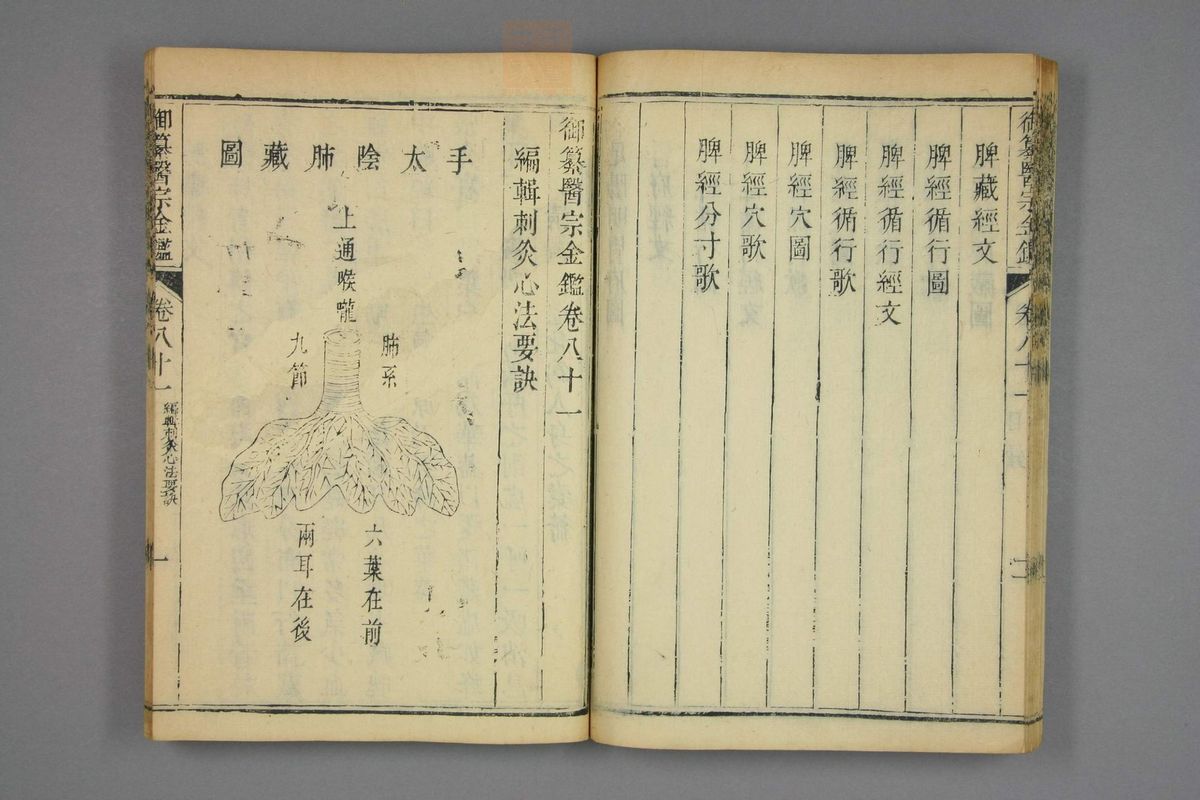 脾藏經文
脾經循行圖
脾經循行經文
脾經循行歌
脾經穴圖
脾經穴歌
脾經分寸歌
御纂醫宗金鑑
卷八十一
二
御纂醫宗金鑑卷八十一
編輯刺灸心法要訣
手太陰肺藏圖
上通喉嚨
肺系
九節
六葉在前
兩耳在後
御纂醫宗金鑑
卷八十一
編輯刺灸心法要訣
一